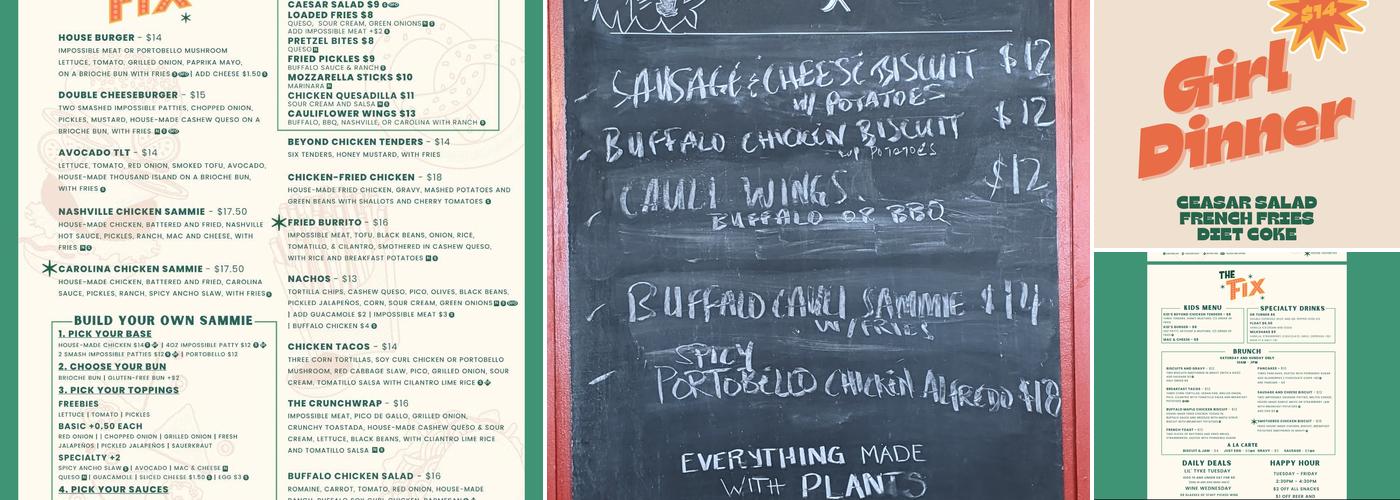 FIX
HOUSE BURGER - $14
IMPOSSIBLE MEAT OR PORTOBELLO MUSHROOM
LETTUCE, TOMATO, GRILLED ONION, PAPRIKA MAYO,
ON A BRIOCHE BUN WITH FRIES | ADD CHEESE $1.50
DOUBLE CHEESEBURGER - $15
TWO SMASHED IMPOSSIBLE PATTIES, CHOPPED ONION,
PICKLES, MUSTARD, HOUSE-MADE CASHEW QUESO ON A
BRIOCHE BUN, WITH FRIES
AVOCADO TLT - $14
LETTUCE, TOMATO, RED ONION, SMOKED TOFU, AVOCADO,
HOUSE-MADE THOUSAND ISLAND ON A BRIOCHE BUN,
WITH FRIES
NASHVILLE CHICKEN SAMMIE - $17.50
HOUSE-MADE CHICKEN, BATTERED AND FRIED, NASHVILLE
HOT SAUCE, PICKLES, RANCH, MAC AND CHEESE, WITH
FRIES
CAROLINA CHICKEN SAMMIE - $17.50
HOUSE-MADE CHICKEN, BATTERED AND FRIED, CAROLINA
SAUCE, PICKLES, RANCH, SPICY ANCHO SLAW, WITH FRIES
BUILD YOUR OWN SAMMIE
1. PICK YOUR BASE
HOUSE-MADE CHICKEN $14 | 4OZ IMPOSSIBLE PATTY $12
2 SMASH IMPOSSIBLE PATTIES $12 | PORTOBELLO $12
2. CHOOSE YOUR BUN
BRIOCHE BUN | GLUTEN-FREE BUN +$2
3. PICK YOUR TOPPINGS
FREEBIES
LETTUCE | TOMATO | PICKLES
BASIC +0.50 EACH
RED ONION | | CHOPPED ONION | GRILLED ONION | FRESH
JALAPEÑOS | PICKLED JALAPEÑOS | SAUERKRAUT
SPECIALTY +2
SPICY ANCHO SLAW | AVOCADO | MAC & CHEESE
QUESO | GUACAMOLE | SLICED CHEESE $1.50 | EGG $3
4. PICK YOUR SAUCES
CAESAR SALAD $9
LOADED FRIES $8
QUESO, SOUR CREAM, GREEN ONIONS
ADD IMPOSSIBLE MEAT +$2
PRETZEL BITES $8
QUESO
FRIED PICKLES $9
BUFFALO SAUCE & RANCH
MOZZARELLA STICKS $10
MARINARA
CHICKEN QUESADILLA $11
SOUR CREAM AND SALSA
CAULIFLOWER WINGS $13
BUFFALO, BBQ, NASHVILLE, OR CAROLINA WITH RANCH
BEYOND CHICKEN TENDERS - $14
SIX TENDERS, HONEY MUSTARD, WITH FRIES
CHICKEN-FRIED CHICKEN - $18
HOUSE-MADE FRIED CHICKEN, GRAVY, MASHED POTATOES AND
GREEN BEANS WITH SHALLOTS AND CHERRY TOMATOES
FRIED BURRITO - $16
IMPOSSIBLE MEAT, TOFU, BLACK BEANS, ONION, RICE,
TOMATILLO, & CILANTRO, SMOTHERED IN CASHEW QUESO,
WITH RICE AND BREAKFAST POTATOES
NACHOS - $13
TORTILLA CHIPS, CASHEW QUESO, PICO, OLIVES, BLACK BEANS,
PICKLED JALAPEÑOS, CORN, SOUR CREAM, GREEN ONIONS
| ADD GUACAMOLE $2 | IMPOSSIBLE MEAT $3
| BUFFALO CHICKEN $4
CHICKEN TACOS - $14
THREE CORN TORTILLAS, SOY CURL CHICKEN OR PORTOBELLO
MUSHROOM, RED CABBAGE SLAW, PICO, GRILLED ONION, SOUR
CREAM, TOMATILLO SALSA WITH CILANTRO LIME RICE
THE CRUNCHWRAP - $16
IMPOSSIBLE MEAT, PICO DE GALLO, GRILLED ONION,
CRUNCHY TOASTADA, HOUSE-MADE CASHEW QUESO & SOUR
CREAM, LETTUCE, BLACK BEANS, WITH CILANTRO LIME RICE
AND TOMATILLO SALSA
BUFFALO CHICKEN SALAD - $16
ROMAINE, CARROT, TOMATO, RED ONION, HOUSE-MADE
SAUSAGE & CHEESE BISCUIT $12
W/ POTATOES
BUFFALO CHICKEN BISCUIT $12
W/ POTATOES
CAULI WINGS $12
BUFFALO OR BBQ
BUFFALO CAULI SAMMIE $14
W/ FRIES
SPICY
PORTOBELLO CHICKEN ALFREDO $18
EVERYTHING MADE
WITH PLANTS
$14
Girl
Dinner
CEASAR SALAD
FRENCH FRIES
DIET COKE
THE
FIX
KIDS MENU
SPECIALTY DRINKS
BRUNCH
SATURDAY AND SUNDAY ONLY
BISCUITS AND GRAVY - $12
PANCAKES
BREAKFAST TACOS
SAUSAGE AND CHEESE BISCUIT
BUFFALO MAPLE CHICKEN BISCUIT
SMOTHERED CHICKEN BISCUIT
FRENCH TOAST
A LA CARTE
DAILY DEALS
LIL' TYKE TUESDAY
WINE WEDNESDAY
HAPPY HOUR
TUESDAY - FRIDAY
2:30PM - 4:30PM
$2 OFF ALL SNACKS
$1 OFF BEER AND